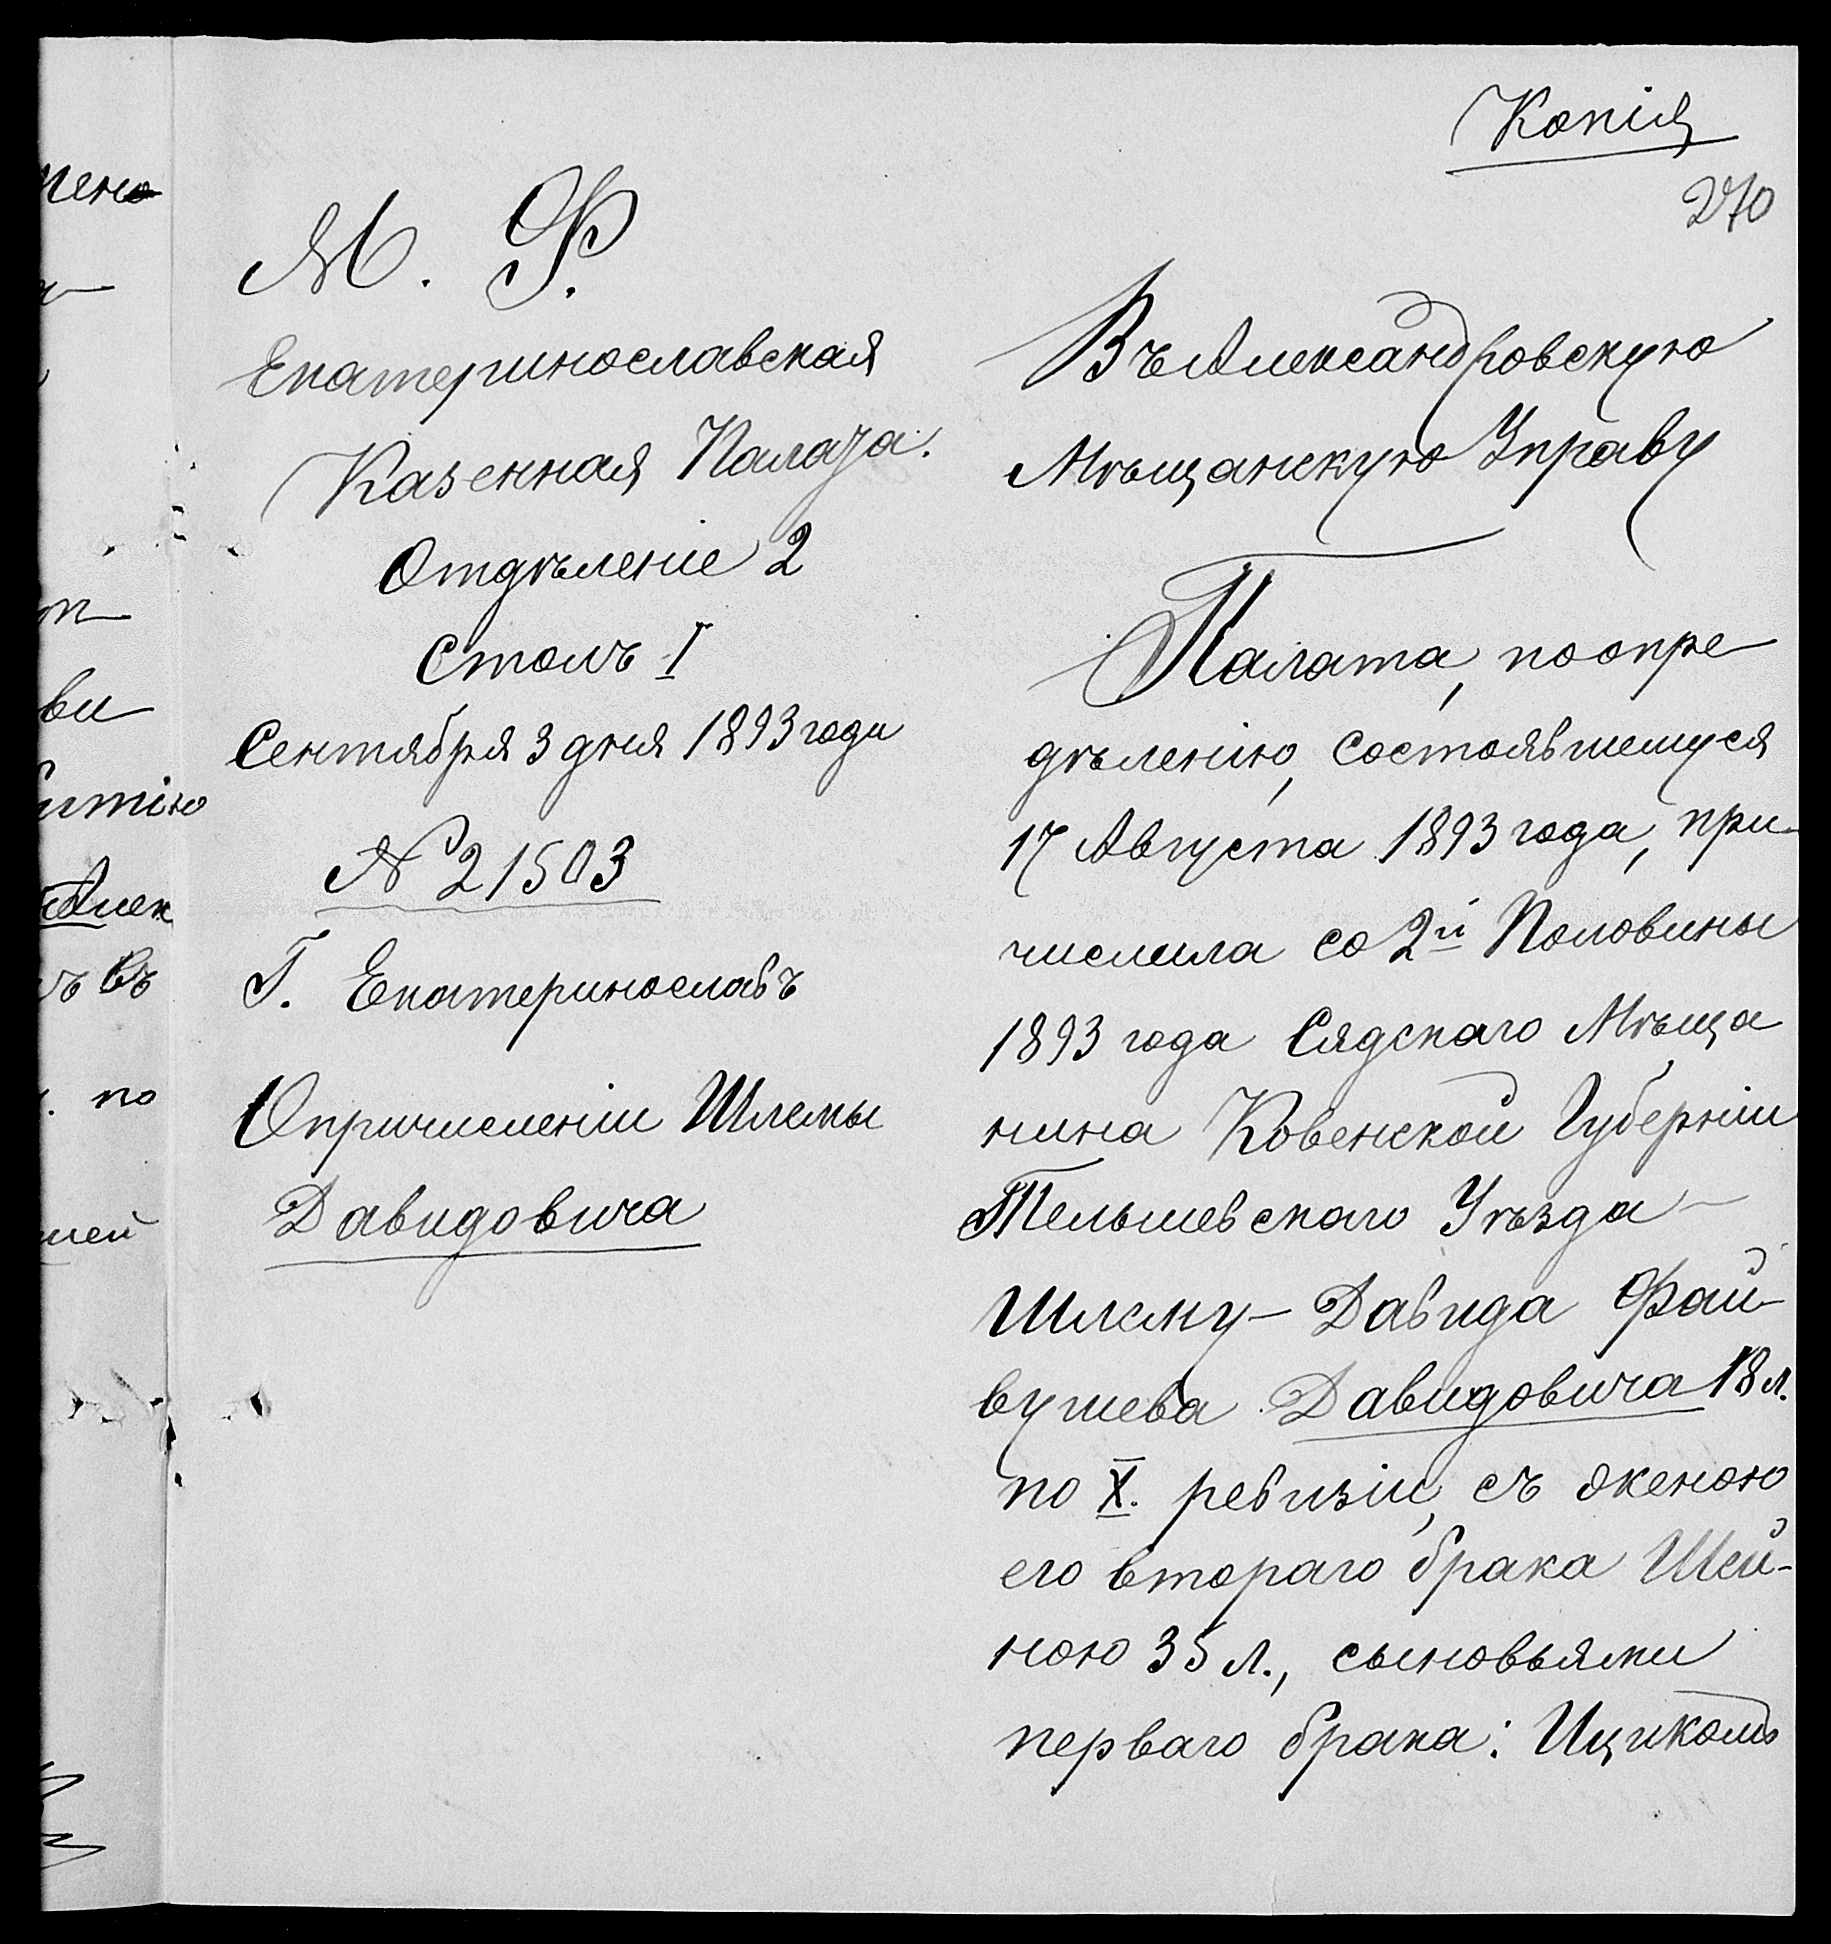 Копія
270
М. Ф.
Екатеринославская
Казенная Палата.
Отдѣленіе 2
Столъ I
Сентября 3 дня 1893 года
№ 21503
Г. Екатеринославъ
О причисленіи Шлемы
Давидовича
Въ Александровскую
Мѣщанскую Управу
Палата, по опре
дѣленію, состоявшемуся
17 Августа 1893 года, при-
числила со 2й Половины
1893 года Сядскаго Мѣща
нина Ковенской Губерніи
Тельшевскаго Уѣзда
Шлему-Давида Фай-
вушева Давидовича 18 л.
по X. ревизіи, съ женою
его втораго брака Шей-
ною 35 л., сыновьями
перваго брака: Ицикомъ
ви
Алек
въ
по